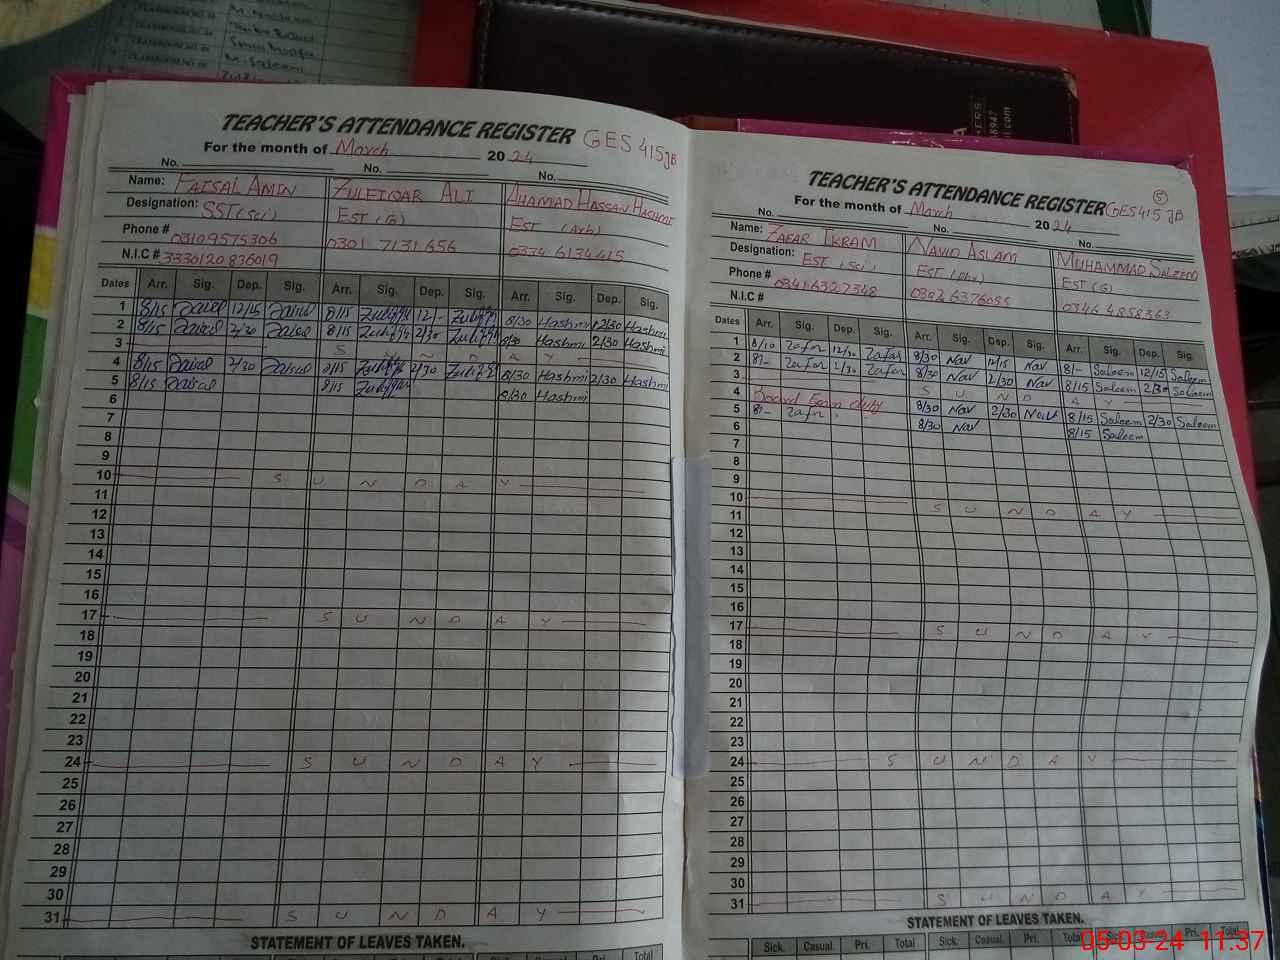 TEACHER'S ATTENDANCE REGISTER GES 415 JB
For the month of March 2024
No. No. No.
Name: FAISAL AMIN ZULFIQAR ALI AHAMAD HASSAN HASHMI
Designation: SST (Sci) EST (G) EST (Arb)
Phone # 03109575306 0301 7131656 0334 6134415
N.I.C # 3330120836019
Dates Arr. Sig. Dep. Sig. Arr. Sig. Dep. Sig. Arr. Sig. Dep. Sig.
1 8/15 Faisal 12/15 Faisal 8/15 12/- 8/30 Hashmi 12/30 Hashmi
2 8/15 Faisal 2/30 Faisal 8/15 2/30 8/30 Hashmi 2/30 Hashmi
3 SUNDAY
4 8/15 Faisal 2/30 Faisal 8/15 2/30 8/30 Hashmi 2/30 Hashmi
5 8/15 Faisal 8/15 8/30 Hashmi
6
7
8
9
10 SUNDAY
11
12
13
14
15
16
17 SUNDAY
18
19
20
21
22
23
24 SUNDAY
25
26
27
28
29
30
31 SUNDAY
STATEMENT OF LEAVES TAKEN.
5
TEACHER'S ATTENDANCE REGISTER GES 415 JB
For the month of March 2024
No. No. No.
Name: ZAFAR IKRAM NAVID ASLAM MUHAMMAD SALEEM
Designation: EST (Sci) EST (Phy) EST (G)
Phone # 0341 6327348 0302 6376055 0346 4858363
N.I.C #
Dates Arr. Sig. Dep. Sig. Arr. Sig. Dep. Sig. Arr. Sig. Dep. Sig.
1 8/10 Zafar 12/30 Zafar 8/30 Nav 12/15 Nav 8/- Saleem 12/15 Saleem
2 8/- Zafar 2/30 Zafar 8/30 Nav 2/30 Nav 8/15 Saleem 2/30 Saleem
3 SUNDAY
4 Board Exam duty 8/30 Nav 2/30 Nav 8/15 Saleem 2/30 Saleem
5 8/- Zafar 8/30 Nav 8/15 Saleem
6
7
8
9
10 SUNDAY
11
12
13
14
15
16
17 SUNDAY
18
19
20
21
22
23
24 SUNDAY
25
26
27
28
29
30
31 SUNDAY
STATEMENT OF LEAVES TAKEN.
Sick. Casual. Pri. Total Sick. Casual. Pri. Total Sick. Pri. Total
05-03-24 11:37